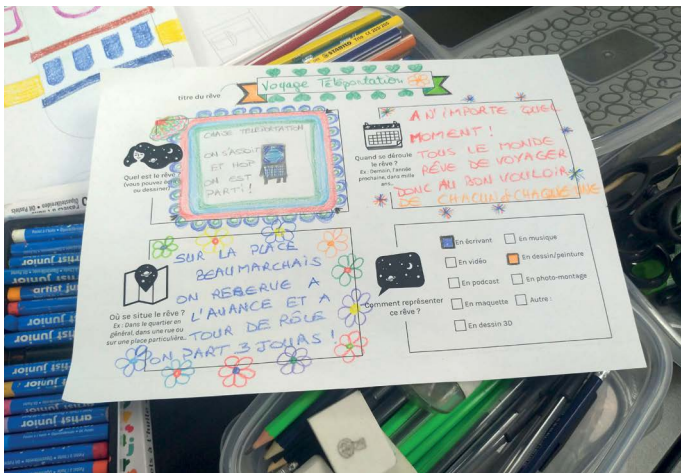 titre du rêve
Voyage Téléportation
CHAISE TELEPORTATION
ON S'ASSOIT
ET HOP
ON EST
PARTI !
Quel est le rêve
(vous pouvez
ou dessiner)
Quand se déroule
le rêve ?
Ex : Demain, l'année
prochaine, dans mille
ans...
A N'IMPORTE QUEL
MOMENT !
TOUS LE MONDE
RÊVE DE VOYAGER
DONC AU BON VOULOIR
DE CHACUN & CHAQUE UNE
Où se situe le rêve ?
Ex : Dans le quartier en
général, dans une rue ou
sur une place particulière..
SUR LA PLACE
BEAUMARCHAIS
ON RESERVE A
L'AVANCE ET A
TOUR DE RÔLE
ON PART 3 JOURS !
Comment représenter
ce rêve ?
En écrivant
En musique
En vidéo
En dessin/peinture
En podcast
En photo-montage
En maquette
Autre :
En dessin 3D
artist junior
junior artist